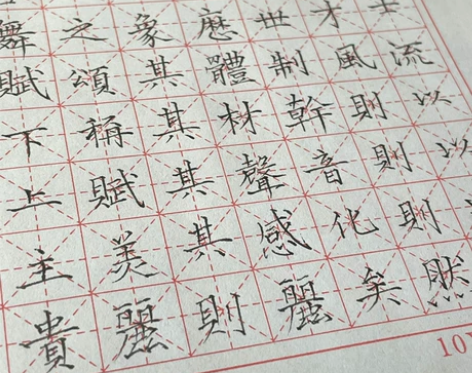 舞之象歷世才士
賦頌其體制風流
下稱其材幹則以
上賦其聲音則以
主美其感化則
貴麗則麗矣然
10